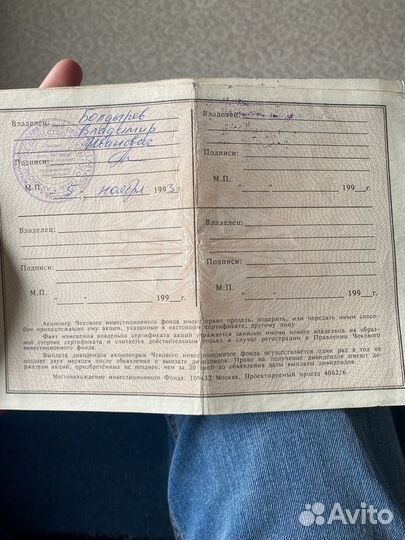 Владелец: Болдырев
Владимир
Иванович
Подписи:
М.П. 5 " ноября 1993 г.
Владелец:
Подписи:
М.П. " " 199 г.
Владелец:
Подписи:
М.П. " " 199 г.
Владелец:
Подписи:
М.П. " " 199 г.
Акционер Чекового инвестиционного фонда имеет право продать, подарить, или передать иным спосо-
бом принадлежащие ему акции, указанные в настоящем сертификате, другому лицу.
Факт изменения владельца сертификата акций отражается записью имени нового владельца на обрат-
ной стороне сертификата и считается действительным только в случае регистрации в Правлении Чекового
инвестиционного фонда.
Выплата дивидендов акционерам Чекового инвестиционного фонда осуществляется один раз в год не
позднее двух месяцев после объявления о выплате дивидендов. Право на получение дивидендов имеют де-
ржатели акций, приобретённых не позднее, чем за 30 дней до объявления даты выплаты дивидендов.
Местонахождение инвестиционного Фонда: 109432 Москва, Проектируемый проезд 4062/6.
Avito